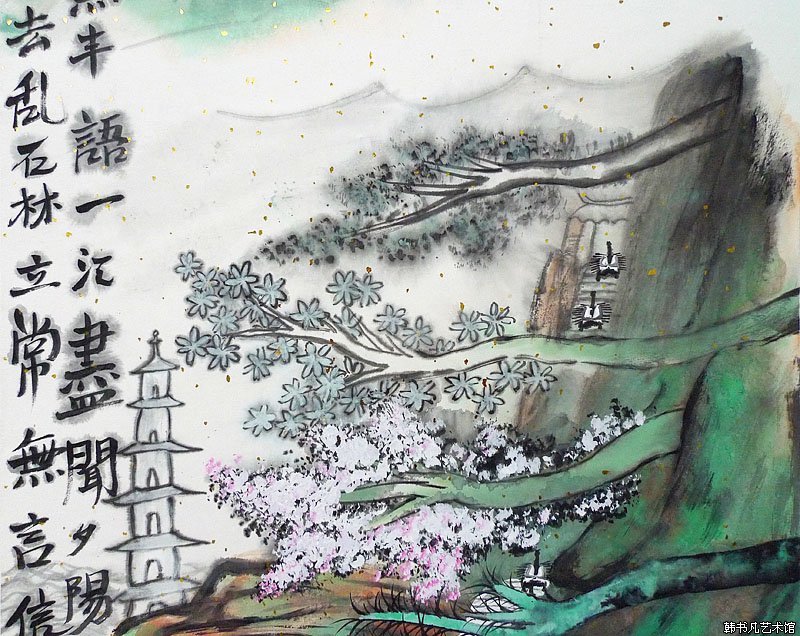 丰語一江盡聞夕陽
去乱石林立常無言信
韩书凡艺术馆